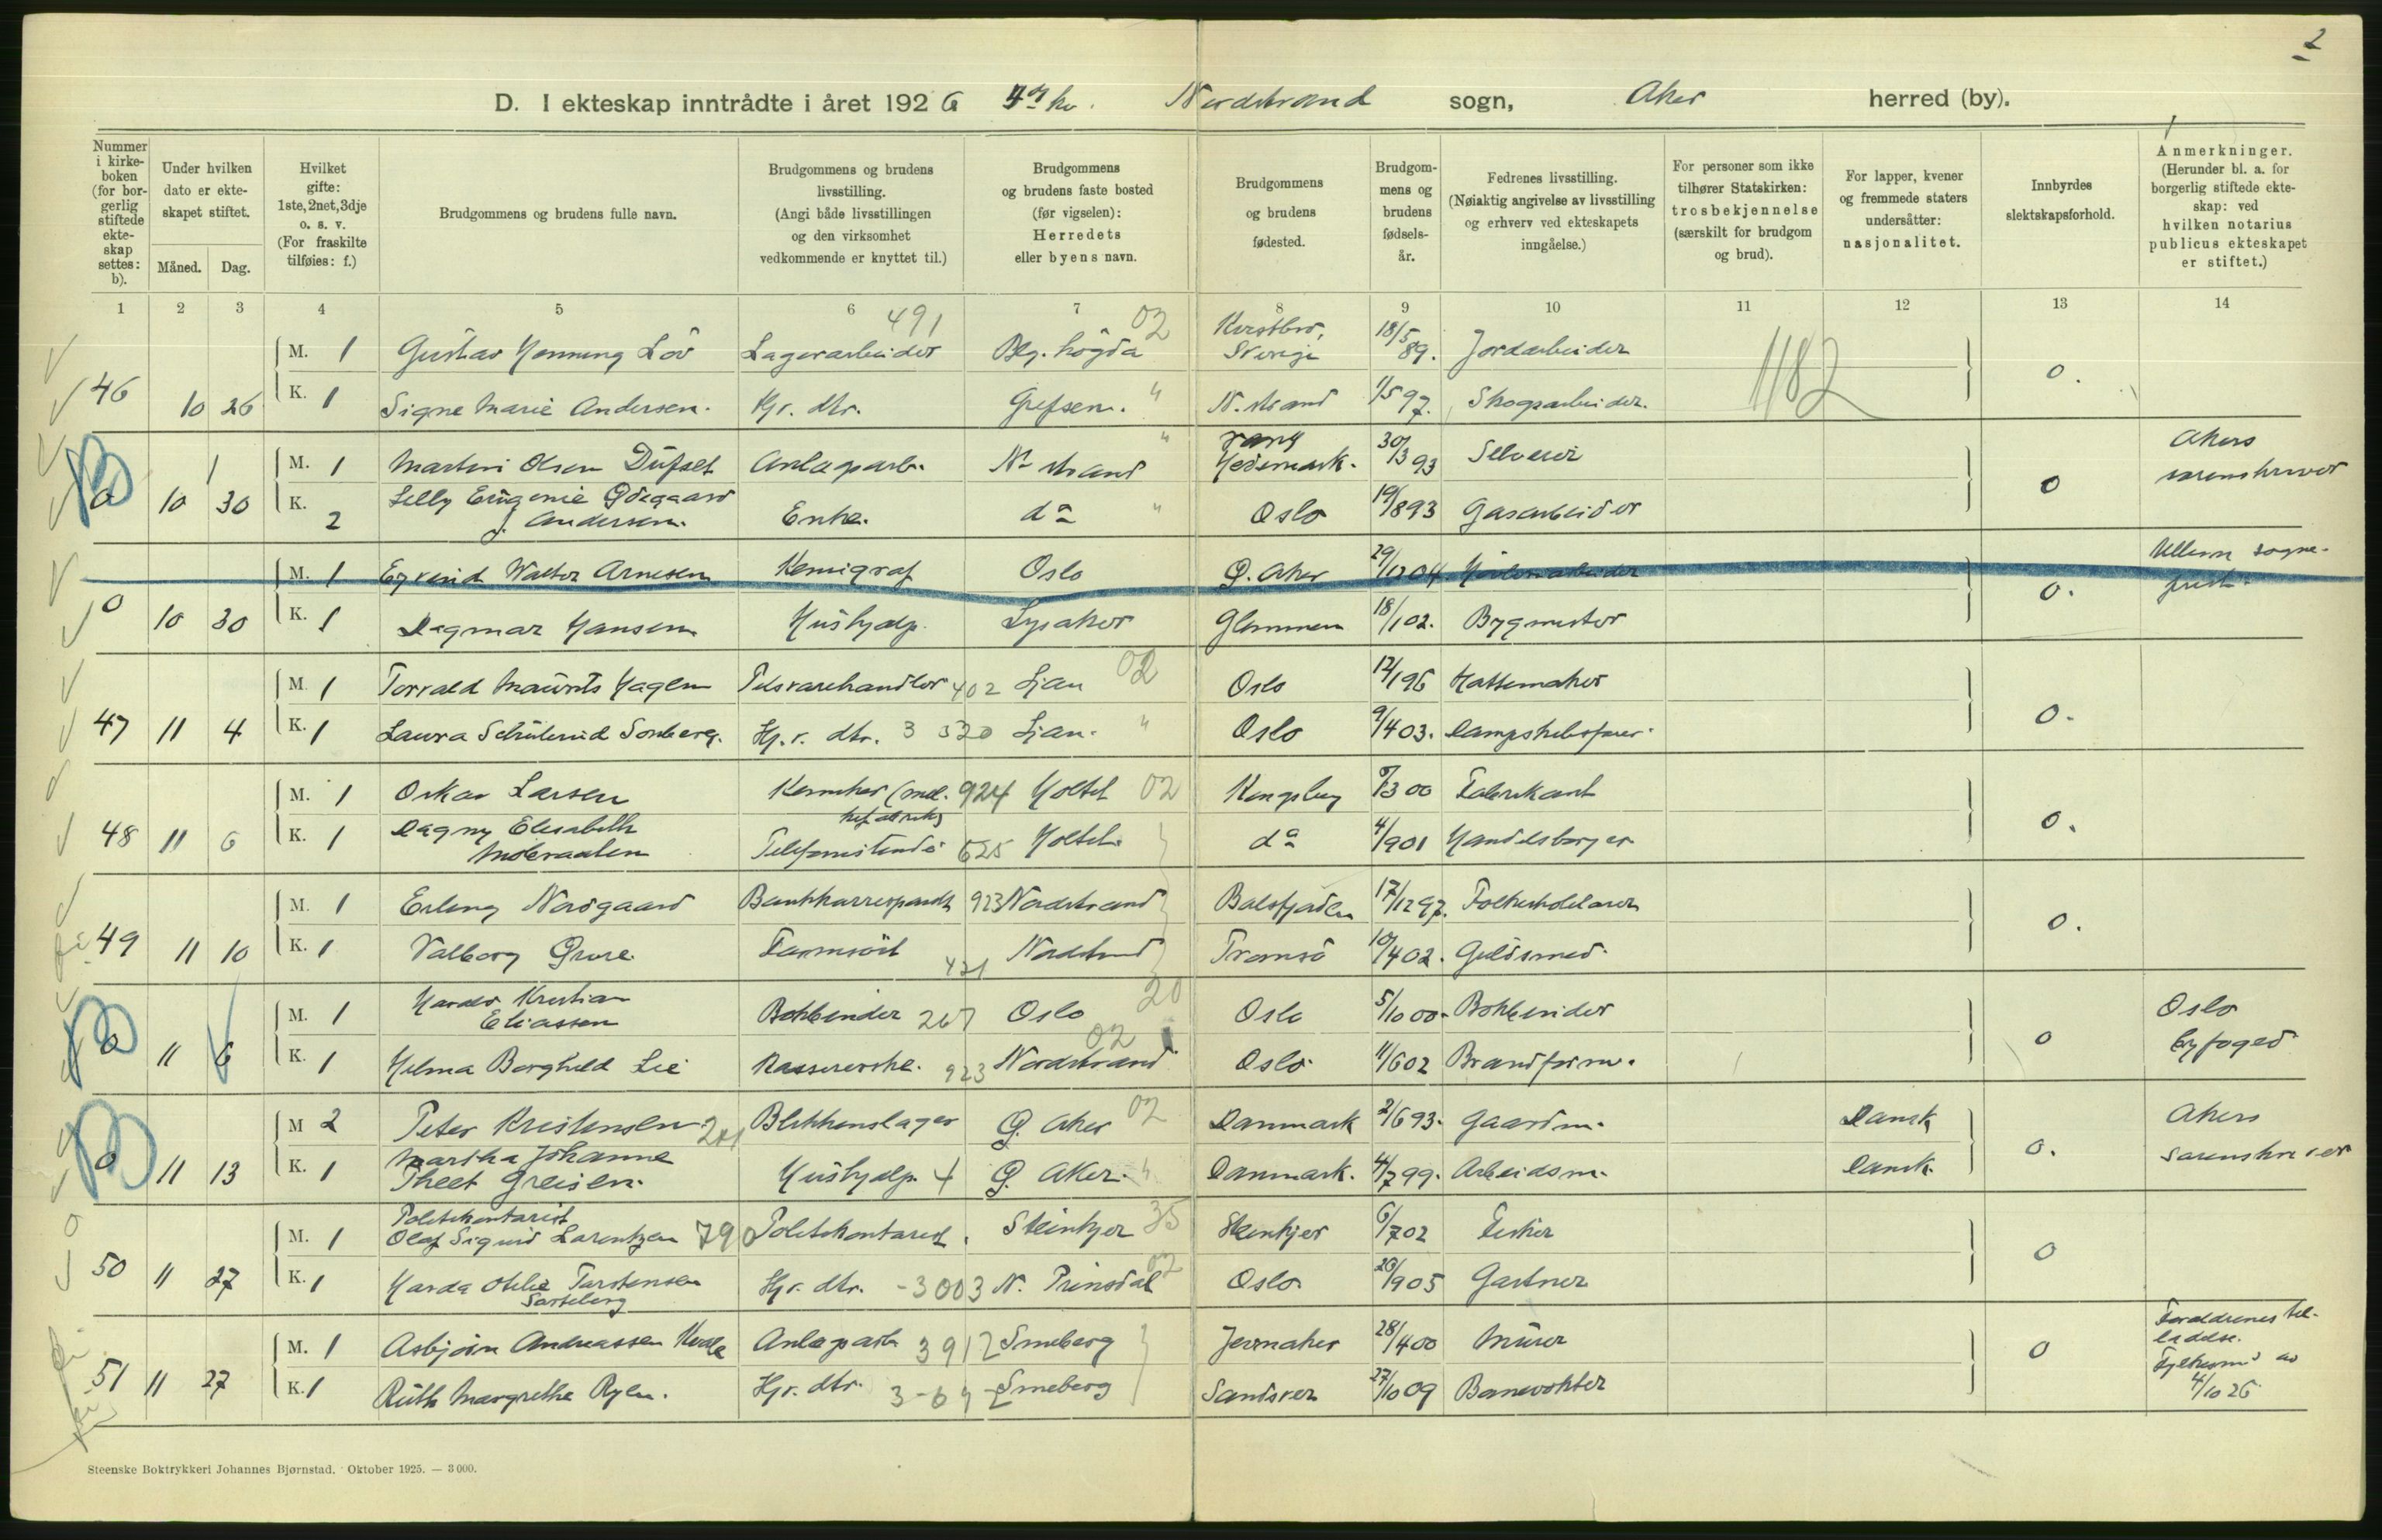 2
D. I ekteskap inntrådte i året 1926 4de kv. Nordstrand sogn, Aker herred (by).
Nummer i kirke-boken (for bor-gerlig stiftede ekte-skap settes: b).
Under hvilken dato er ekte-skapet stiftet.
Måned. Dag.
Hvilket gifte: 1ste, 2net, 3dje o. s. v. (For fraskilte tilføies: f.)
Brudgommens og brudens fulle navn.
Brudgommens og brudens livsstilling. (Angi både livsstillingen og den virksomhet vedkommende er knyttet til.)
Brudgommens og brudens faste bosted (før vigselen): Herredets eller byens navn.
Brudgommens og brudens fødested.
Brudgom-mens og brudens fødsels-år.
Fedrenes livsstilling. (Nøiaktig angivelse av livsstilling og erhverv ved ekteskapets inngåelse.)
For personer som ikke tilhører Statskirken: trosbekjennelse (særskilt for brudgom og brud).
For lapper, kvener og fremmede staters undersåtter: nasjonalitet.
Innbyrdes slektskapsforhold.
Anmerkninger. (Herunder bl. a. for borgerlig stiftede ekte-skap: ved hvilken notarius publicus ekteskapet er stiftet.)
1 2 3 4 5 6 7 8 9 10 11 12 13 14
491 02
M. 1 Gustav Henning Löv Lagerarbeider Sverige 18/5 89. Jordarbeider 1182
46 10 26 K. 1 Signe Marie Andersen. Hj. dtr. Grefsen. " N.strand 1/5 97. Skogsarbeider. 0.
M. 1 Martin Olsen Anlægsarb. N-strand " Vang Hedemark. 30/3 93 Selveier Akers sorenskriver
0 10 30 K. 2 Lilly Eugenie Ødegaard f. Andersen. Enke. do " Oslo 19/893 Gasarbeider 0
M. 1 Eyvind Walter Arnesen Kemigraf Oslo Ø. Aker 29/1204. Ullern sogne-prest.
0 10 30 K. 1 Dagmar Hansen Hushjelp. Lysaker Glemmen 18/102. Bygmester 0.
M. 1 Torvald Maurits Hagen Pelsvarehandler 402 Ljan 02 Oslo 12/196 Hattemaker
47 11 4 K. 1 Laura Schulerud Sonberg. Hj. v. dtr. 3 320 Ljan. " Oslo 9/403. Dampskibsfører. 0.
M. 1 Oskar Larsen 924 Holtet 02 Kongsberg /300 Fabrikant
48 11 6 K. 1 Dagny Elisabeth Telefonistinde 625 Holtet. do 4/901 Handelsborger. 0.
M. 1 Erling Nordgaard Bankkorrespondt 923 Nordstrand Balsfjorden 17/1297. Folkeskolelærer
49 11 10 K. 1 Valborg Grure. 421 Nordstrand Tromsö 10/402. Guldsmed. 0.
M. 1 Harald Kristian Eliassen Bokbinder 267 Oslo 20 Oslo 5/1000. Bokbinder Oslo byfoged
0 11 6 K. 1 Helma Borghild Lie Kassererske. 923 Nordstrand 02 Oslo 11/602 Brandform. 0
M 2 Peter Kristensen 241 Blikkenslager Ø. Aker 02 Danmark 2/693. Gaardm. Dansk Akers sorenskriver
0 11 13 K. 1 Martha Johanne Theet Greisen. Hushjelp. 4 Ø. Aker. " Danmark. 4/799. Arbeidsm. Dansk. 0.
M. 1 Politikontorist Olaf Sigurd Lorentzen 790 Politikontorist. Steinkjer 35 Steinkjer 6/702 Fisker
50 11 27 K. 1 Harda Otilie Torstensen Hj. v. dtr. -3003 N. Prinsdal 02 Oslo. 20/905 Gartner 0
M. 1 Asbjörn Andreassen Anlægsarb 3912 Smeberg Jernaker 28/400 Murer Foreldrenes til-ladelse.
51 11 27 K. 1 Ruth Margrethe Rylen. Hj. v. dtr. Smeberg Sandsver 27/1009 Banevokter 0 Fylkesm's av 4/10 26
Steenske Boktrykkeri Johannes Bjørnstad. Oktober 1925. — 3 000.